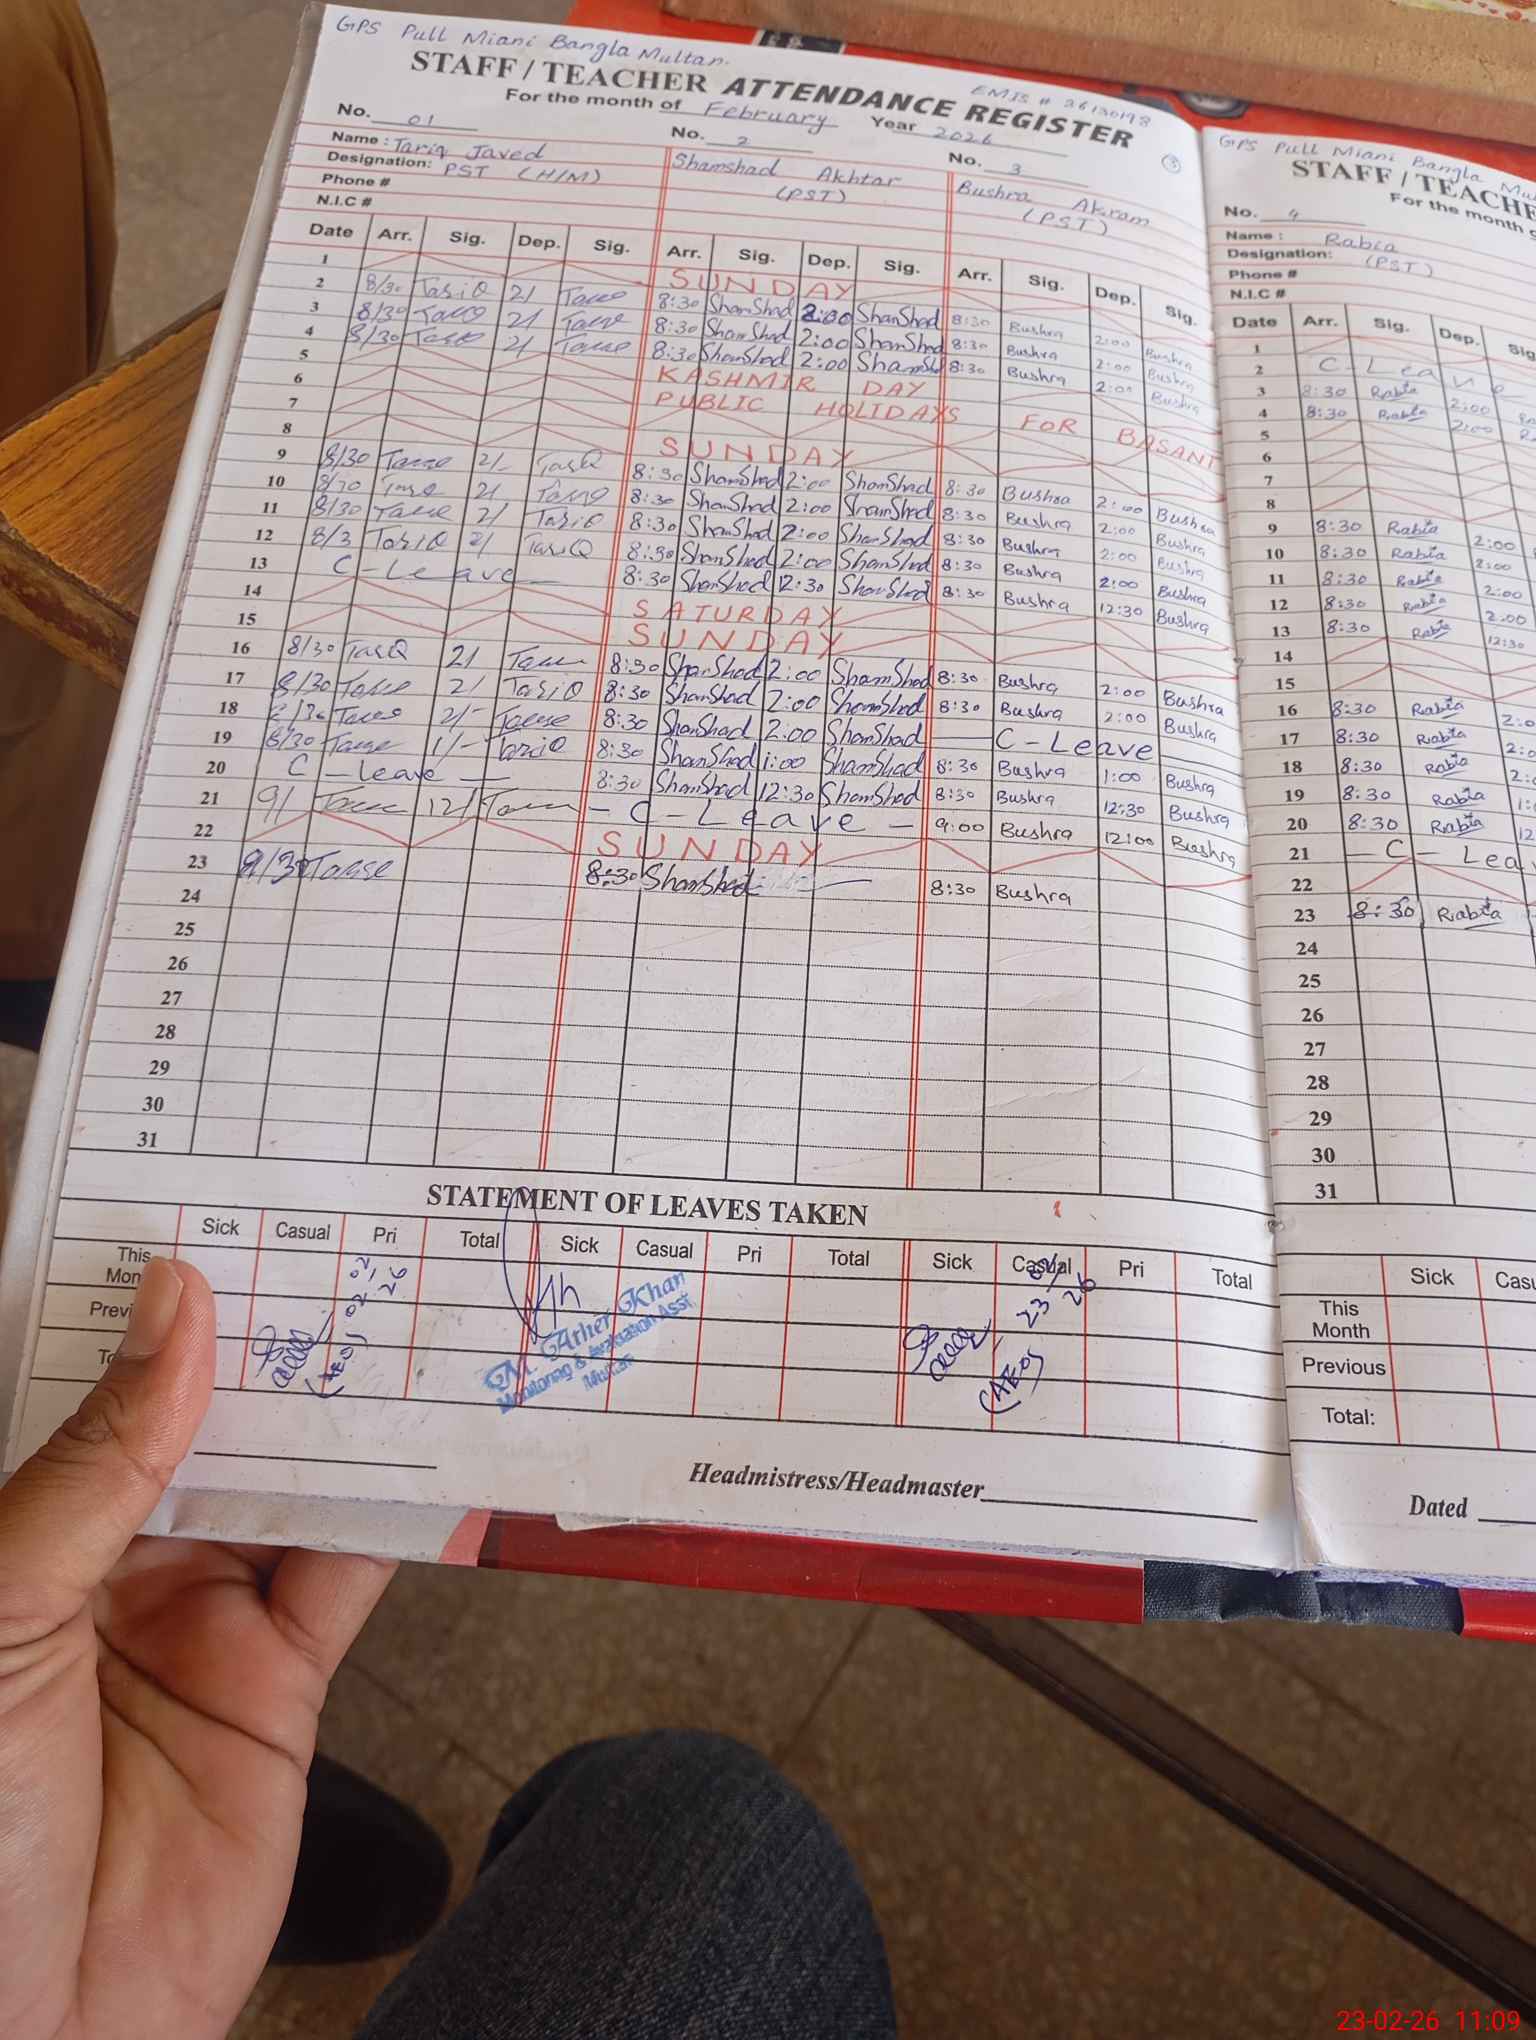 GPS Pull Miani Bangla Multan.
STAFF / TEACHER ATTENDANCE REGISTER
EMIS # 36130198
For the month of February Year 2026
No. 01 No. 2 No. 3
Name : Tariq Javed Shamshad Akhtar Bushra Akram
Designation: PST (H/M) (PST) (PST)
Phone #
N.I.C #
Date Arr. Sig. Dep. Sig. Arr. Sig. Dep. Sig. Arr. Sig. Dep. Sig.
1 SUNDAY
2 8/30 TariQ 2/ 8:30 ShamShad 2:00 ShamShad 8:30 Bushra 2:00 Bushra
3 8/30 2/ 8:30 ShamShad 2:00 ShamShad 8:30 Bushra 2:00 Bushra
4 8/30 2/ 8:30 ShamShad 2:00 ShamShad 8:30 Bushra 2:00 Bushra
5 KASHMIR DAY
6 PUBLIC HOLIDAYS FOR BASANT
7
8 SUNDAY
9 8/30 2/- TariQ 8:30 ShamShad 2:00 ShamShad 8:30 Bushra 2:00 Bushra
10 8/30 2/ 8:30 ShamShad 2:00 ShamShad 8:30 Bushra 2:00 Bushra
11 8/30 2/ TariQ 8:30 ShamShad 2:00 ShamShad 8:30 Bushra 2:00 Bushra
12 8/3 TariQ 2/ TariQ 8:30 ShamShad 2:00 ShamShad 8:30 Bushra 2:00 Bushra
13 C-Leave 8:30 ShamShad 12:30 ShamShad 8:30 Bushra 12:30 Bushra
14 SATURDAY
15 SUNDAY
16 8/30 TariQ 2/ 8:30 ShamShad 2:00 ShamShad 8:30 Bushra 2:00 Bushra
17 8/30 2/ TariQ 8:30 ShamShad 2:00 ShamShad 8:30 Bushra 2:00 Bushra
18 8/30 2/- 8:30 ShamShad 2:00 ShamShad C-Leave
19 8/30 1/- TariQ 8:30 ShamShad 1:00 ShamShad 8:30 Bushra 1:00 Bushra
20 C-Leave 8:30 ShamShad 12:30 ShamShad 8:30 Bushra 12:30 Bushra
21 9/ 12/ - C-Leave - 9:00 Bushra 12:00 Bushra
22 SUNDAY
23 8/30 8:30 ShamShad 8:30 Bushra
24
25
26
27
28
29
30
31
STATEMENT OF LEAVES TAKEN
Sick Casual Pri Total Sick Casual Pri Total Sick Casual Pri Total
This
Mon
Previ
To
02/02/26
(AEO)
M. Ather Khan
Monitoring & Evaluation Asst
Multan
23/02/26
(AEO)
Headmistress/Headmaster
GPS Pull Miani Bangla Mu
STAFF / TEACHE
For the month o
No. 4
Name : Rabia
Designation: (PST)
Phone #
N.I.C #
Date Arr. Sig. Dep. Sig
1
2 C-Leave
3 8:30 Rabia 2:00
4 8:30 Rabia 2:00
5
6
7
8
9 8:30 Rabia 2:00
10 8:30 Rabia 2:00
11 8:30 Rabia 2:00
12 8:30 Rabia 2:00
13 8:30 Rabia 12:30
14
15
16 8:30 Rabia 2:0
17 8:30 Rabia 2:0
18 8:30 Rabia 2:0
19 8:30 Rabia 1:0
20 8:30 Rabia 12
21 - C - Lea
22
23 8:30 Rabia
24
25
26
27
28
29
30
31
Sick Casu
This
Month
Previous
Total:
Dated
23-02-26 11:09